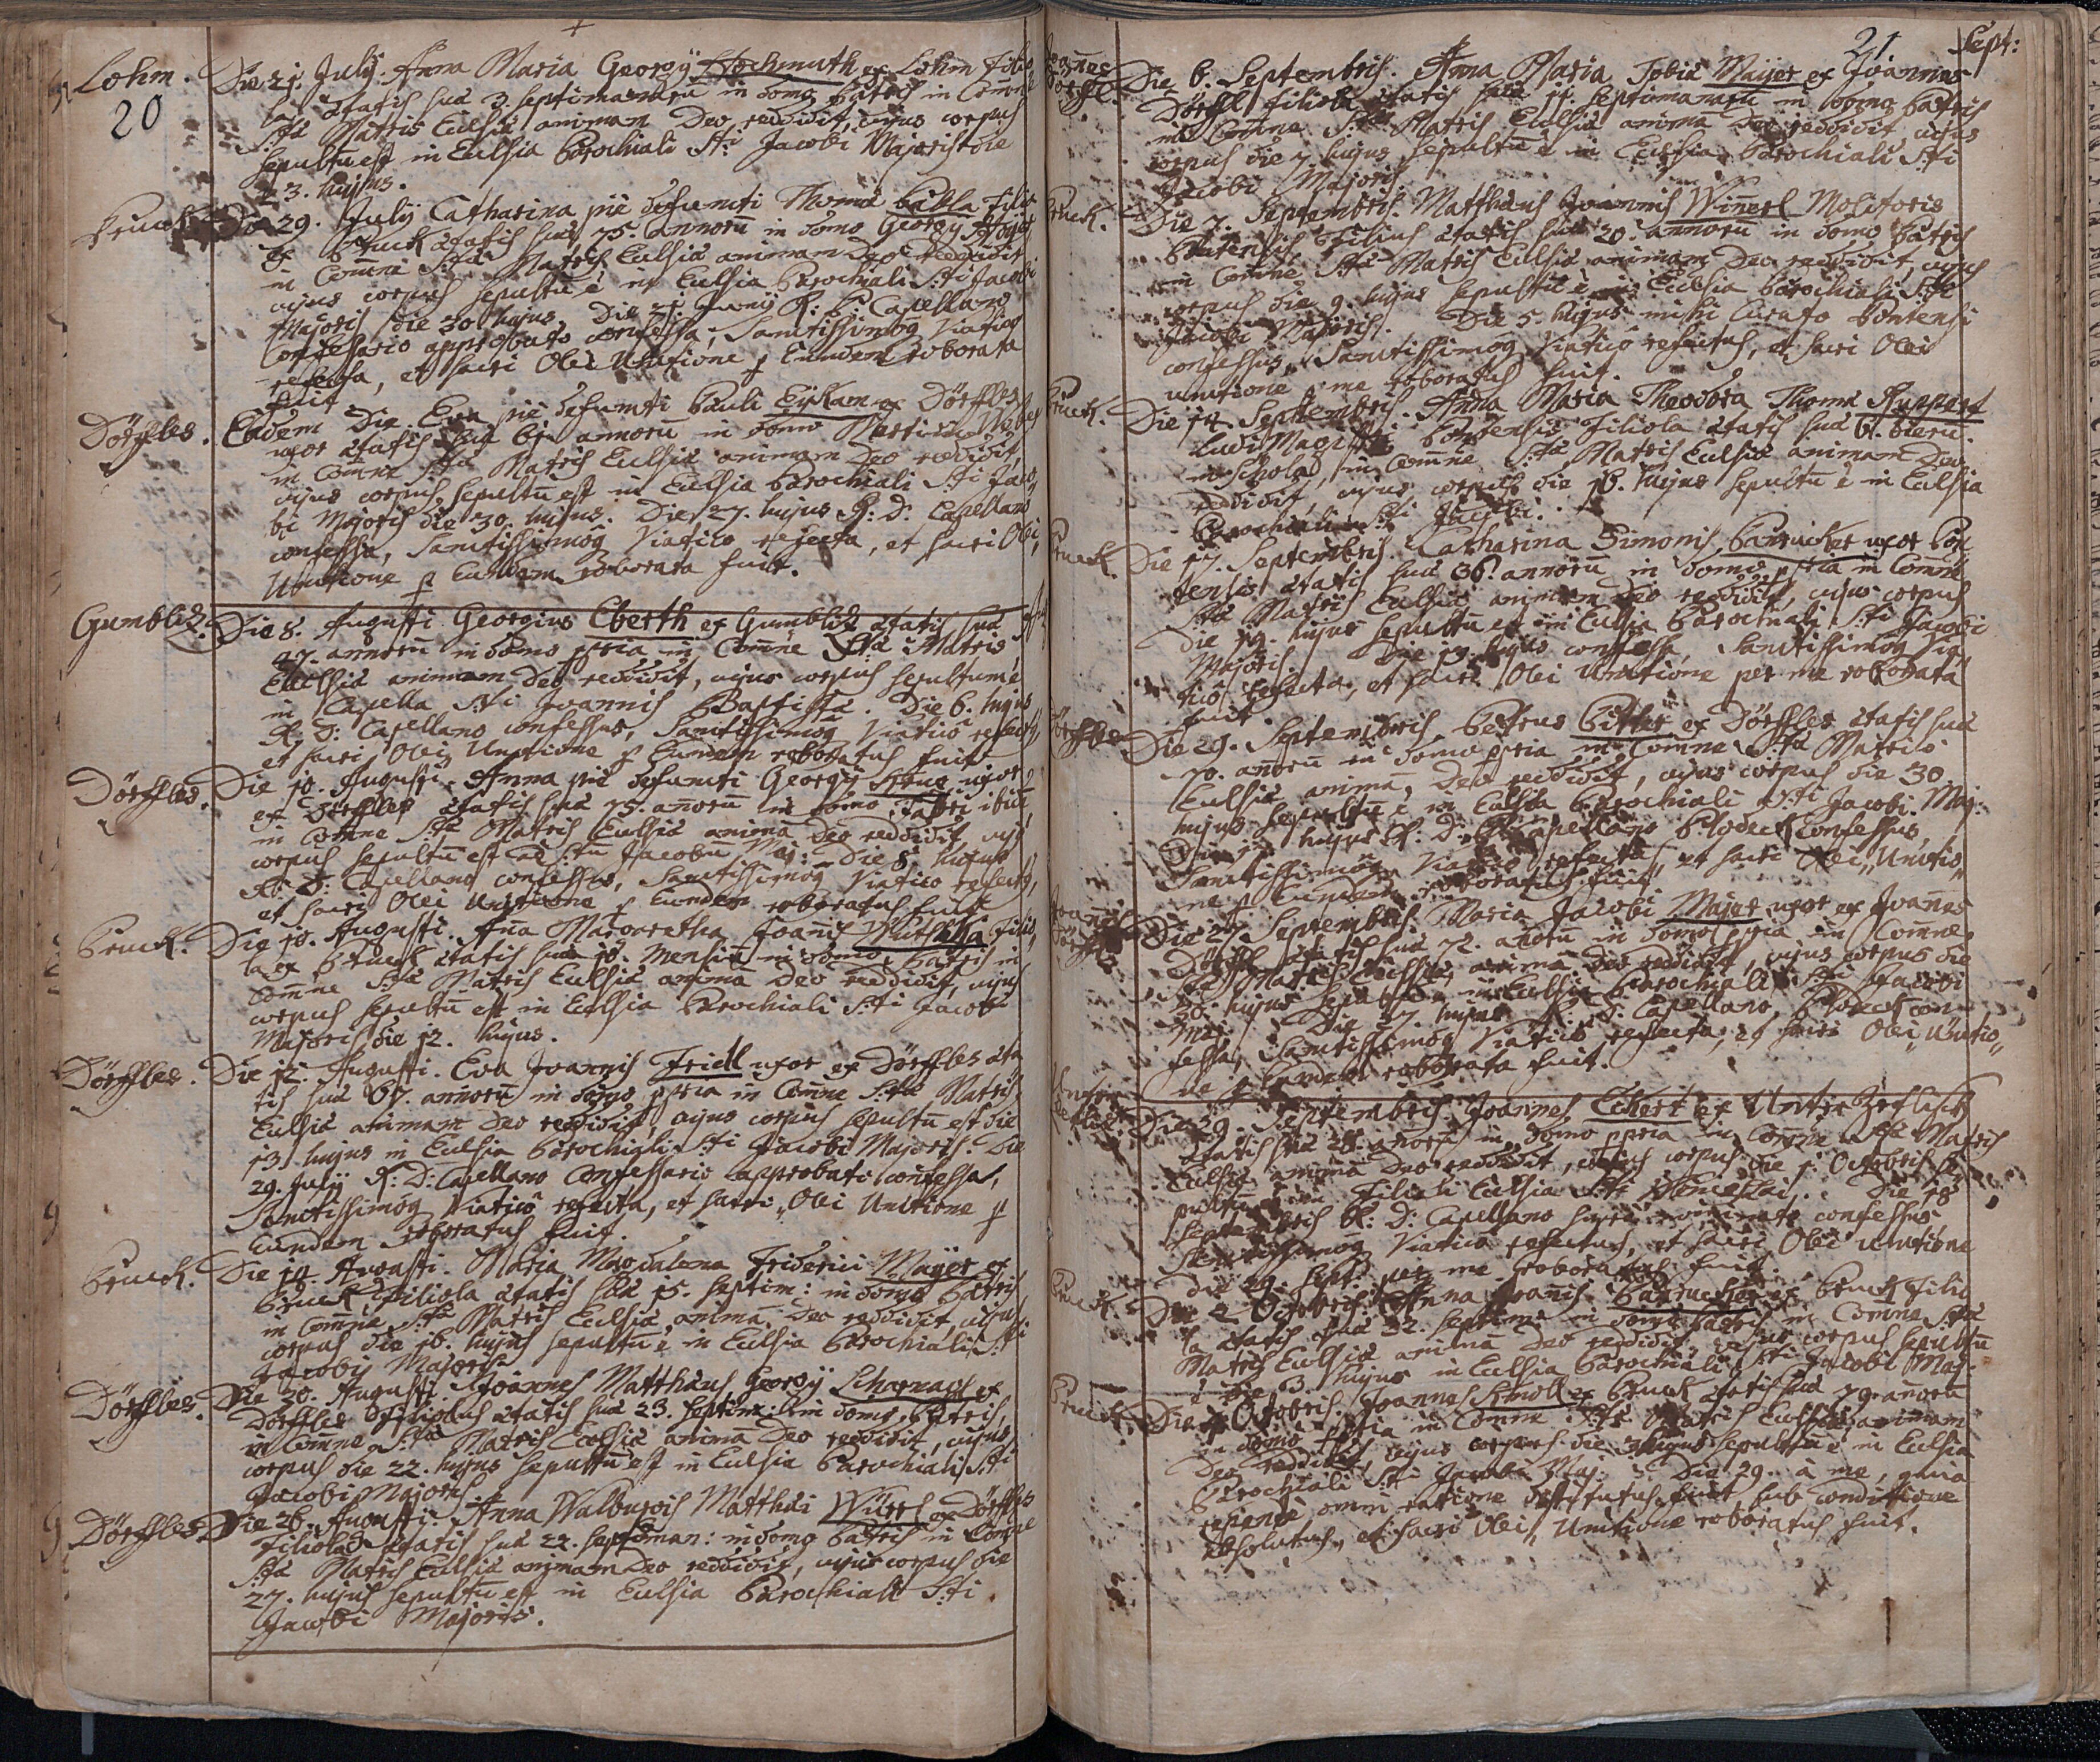 Lohm.
20
Die 21. July. Anna Maria Georgÿ Hochmuth ex Lohm filio
la ætatis suæ 3. septimanarū in domo Patris in Comne
S:tæ Matris Eccl͞siæ animam Deo reddidit, cujus corpus
sepultū est in Eccl͞sia Parochiali S:ti Jacobi Majoris die
23. hujus.
Pruck.
Die 29. July Catharina piè defuncti Thomæ filia
ex Pruck ætatis suæ 75. annorū in domo Georgÿ
in Com̄ne S:tæ Matris Eccl͞siæ animam Deo reddidit
cujus corpus sepultū ē in Eccl͞sia Parochiali S:ti Jacobi
Majoris die 30. hujus. Die 21. Junÿ R: P. Capellano
Confessario approbato confessa, Sanctissimoq̄ Viatico
refecta, et sacri Olei Unctione ꝑ Eundem roborata
fuit.
Dörffles.
Eâdem Die. Eva piè defuncti Pauli Eÿkam ex Dörffles
uxor ætatis suæ 61 annorū in domo Martini
in Com̄ne S:tæ Matris Eccl͞siæ animam Deo reddidit,
cujus corpus sepultū est in Eccl͞sia Parochiali S:ti Jaco„
bi Majoris die 30. hujus. Die 27. hujus R: D: Capellano
confessa, Sanctissimoq̄ Viatico refecta, et sacri Olei
Unctione ꝑ Eundem roborata fuit.
Gumblitz.
Die 8. Augusti. Georgius Eberth ex Gumblitz ætatis suæ
47. annorū in domo ꝓpria in Com̄ne S:tæ Matris
Eccl͞siæ animam Deo reddidit, cujus corpus sepultum ē
in Capella S:ti Joannis Baptistæ. Die 6. hujus
R: D: Capellano confessus, Sanctissimoq̄ Viatico refectus,
et sacri Olei Unctione ꝑ Eundem roboratus fuit.
Dörffles.
Die 10. Augusti. Anna piè defuncti Georgÿ uxor
ex Dörffles ætatis suæ 75. an̄orū in domo Fabri ibid.
in Com̄ne S:tæ Matris Eccl͞siæ animā Deo reddidit, cujus
corpus sepultū est ad S:tū Jacobū Maj: Die 8. hujus
R: D: Capellano confessus, Sanctissimoq̄ Viatico refectus,
et sacri Olei Unctione ꝑ Eundem roboratus fuit.
Pruck.
Die 10. Augusti. An̄a Margaretha Joan̄is Mutschka filio„
la ex Pruck ætatis suæ 10. Mensiū in domo Patris in
Com̄ne S:tæ Matris Eccl͞siæ animā Deo reddidit, cujus
corpus sepultū est in Eccl͞sia Parochiali S:ti Jacobi
Majoris die 12. hujus.
Dörffles.
Die 12. Augusti. Eva Joannis Fridl uxor ex Dörffles æta
tis suæ 67. annorū in domo ꝓpria in Com̄ne S:tæ Matris
Eccl͞siæ animam Deo reddidit, cujus corpus sepultū est die
13. hujus in Eccl͞sia Parochiali S:ti Jacobi Majoris. Die
29. July R: D: Capellano Confessario approbato confessa,
Sanctissimoq̄ Viatico refecta, et sacri Olei Unctione ꝑ
Eundem roboratus fuit.
Pruck.
Die 14. Augusti. Maria Magdalena Friderici Maÿer ex
Pruck filiola ætatis suæ 15. septim: in domo Patris
in Com̄ne S:tæ Matris Eccl͞siæ animā Deo reddidit, cujus
corpus die 16. hujus sepultū ē in Eccl͞sia Parochiali S:ti
Jacobi Majoris
Dörffles.
Die 20. Augusti. Joannes Matthæus Georgÿ Scharnagl ex
Dörffles filiolus ætatis suæ 23. septim: in domo Patris,
in Com̄ne S:tæ Matris Eccl͞siæ animā Deo reddidit, cujus
corpus die 22. hujus sepultū est in Eccl͞sia Parochiali S:ti
Jacobi Majoris.
Dörffles.
Die 26. Augusti. Anna Walburgis Matthæi Würth ex Dörffles
filiola ætatis suæ 22. septiman: in domo Patris in Com̄ne
S:tæ Matris Eccl͞siæ animam Deo reddidit, cujus corpus die
27. hujus sepultū est in Eccl͞sia Parochiali S:ti
Jacobi Majoris.
21
Sept:
Die 6. Septembris. Anna Maria Tobiæ Maÿer ex Joannes
Dörfl filiola ætatis suæ 11. septimanarū in domo Patris
in Com̄ne S:tæ Matris Eccl͞siæ animā Deo reddidit, cujus
corpus die 7. hujus sepultū ē in Eccl͞sia Parochiali S:ti
Jacobi Majoris
Pruck.
Die 7. Septembris. Matthæus Joannis Winerl Molitoris
Pontensis filius ætatis suæ 20. annorū in domo Patris
in Com̄ne S:tæ Matris Eccl͞siæ animam Deo reddidit, cujus
corpus die 9. hujus sepultū ē in Eccl͞sia Parochiali S:ti
Jacobi Majoris. Die 5. hujus mihi Curato Pontensi
confessus, Sanctissimoq̄ Viatico refectus, et sacri Olei
unctione ꝑ me roboratus fuit.
Pruck.
Die 14. Septembris. Anna Maria Theodora Thomæ Ruppert
Ludi Magistri Pontensis filiola ætatis suæ 6. dierū.
in Schola, in Com̄ne S:tæ Matris Eccl͞siæ animam Deo
reddidit, cujus corpus die 16. hujus sepultū ē in Eccl͞sia
Parochiali S:ti Jacobi.
Pruck.
Die 17. Septembris. Catharina Simonis Panrucker uxor Pon
tensis ætatis suæ 36. annorū in domo ꝓpria in Com̄ne
S:tæ Matris Eccl͞siæ animam Deo reddidit, cujus corpus
Die 19. hujus sepultū ē in Eccl͞sia Parochiali S:ti Jacobi
Majoris. Die 13. hujus confessa, Sanctissimoq̄ Via„
tico refecta, et sacri Olei Unctione per me roborata
fuit.
Dörffles
Die 29. Septembris Petrus Bitter ex Dörffles ætatis suæ
70. an̄orū in domo ꝓpria in Com̄ne S:tæ Matris
Eccl͞siæ animā Deo reddidit, cujus corpus die 30
hujus sepultū ē in Eccl͞sia Parochiali S:ti Jacobi Maj:
Die hujus R: D: Capellano confessus,
Sanctissimoq̄ Viatico refectus, et sacri Olei Unctio„
ne ꝑ Eundem roboratus fuit.
Joan̄es
Dörfl
Die 27. Septembris. Maria Jacobi Majer uxor ex Joan̄es
Dörfl ætatis suæ 72. an̄orū in domo ꝓpria in Com̄ne
S:tæ Matris Eccl͞siæ animā Deo reddidit, cujus corpus die
hujus sepultū ē in Eccl͞sia Parochiali S:ti Jacobi
Maj: Die 27. hujus R: D: Capellano con„
fessa, Sanctissimoq̄ Viatico refecta, et sacri Olei Unctio„
ne ꝑ Eundem roborata fuit.
Die 29. Septembris. Joannes Eckert ex Unter
ætatis suæ 28. an̄orū in domo ꝓpria in Com̄ne S:tæ Matris
Eccl͞siæ animā Deo reddidit, cujus corpus die 1. Octobris se„
pultū ē in Filiali Eccl͞sia S:ti Wenceslai. Die 18
Septembris R: D: Capellano confessus
Sanctissimoq̄ Viatico refectus, et sacri Olei unctione
die 29. Sept: per me roboratus fuit.
Pruck.
Die 2 Octobris Anna Joan̄is Panrucker ex Pruck filio
la ætatis suæ 22. septim: in domo Patris in Com̄ne S:tæ
Matris Eccl͞siæ animā Deo reddidit, cujus corpus sepultū
ē die 3. hujus in Eccl͞sia Parochiali S:ti Jacobi Maj.
Pruck.
Die Octobris. Joannes Schmoll ex Pruck ætatis suæ 79. an̄orū
in domo ꝓpria in Com̄ne S:tæ Matris Eccl͞siæ animam
Deo reddidit, cujus corpus die 3 hujus sepultū ē in Eccl͞sia
Parochiali S:ti Jacobi Maj: Die 29. à me, quia
repente omni ratione destitutus fuit sub conditione
absolutus, et sacri Olei Unctione roboratus fuit.